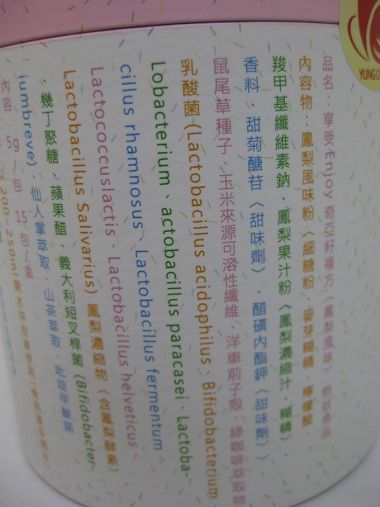 品名：享受Enjoy 奇亞籽複方〈鳳梨風味〉粉狀食品
內容物：鳳梨風味粉〈細糖粉、麥芽糊精、檸檬酸、
羧甲基纖維素鈉、鳳梨果汁粉〈鳳梨濃縮汁、糊精〉、
香料、甜菊醣苷〈甜味劑〉、醋磺內酯鉀〈甜味劑〉〉、
鼠尾草種子、玉米來源可溶性纖維、洋車前子殼、綠咖啡萃取物、
乳酸菌(Lactobacillus acidophilus、Bifidobacterium
Lobacterium、actobacillus paracasei、Lactoba-
cillus rhamnosus、Lactobacillus fermentum、
Lactococcuslactis、Lactobacillus helveticus
Lactobacillus Salivarius)、鳳梨濃縮物〈含鳳梨酵素〉
、幾丁聚糖、蘋果醋、義大利短叉桿菌(Bifidobacter-
iumbreve)、仙人掌萃取、山茶萃取、吡啶甲酸鉻
內容：5g／包，15包／盒
200~250ml
YUNG